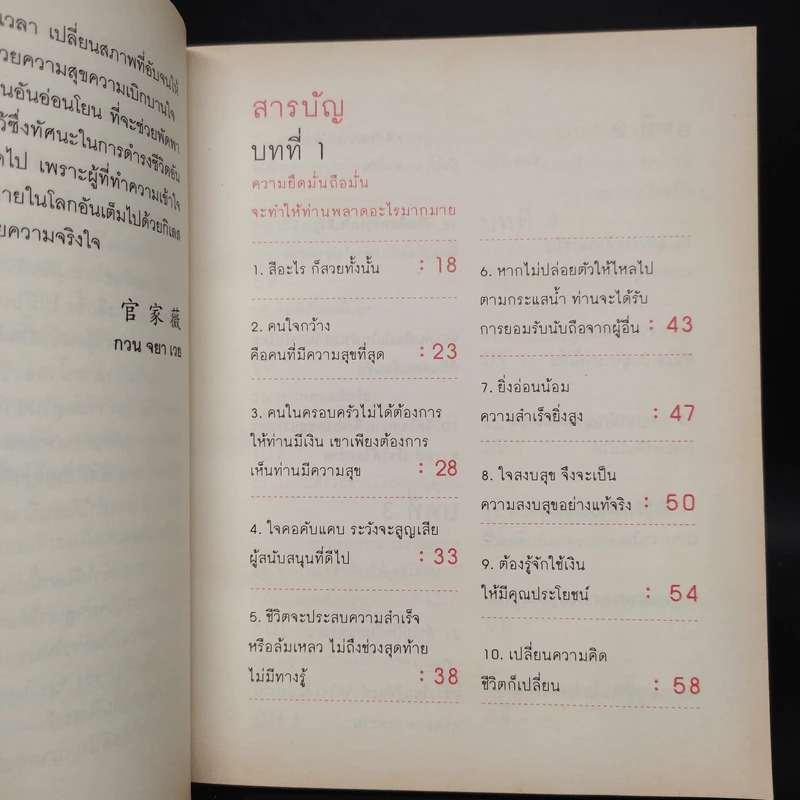 เวลา เปลี่ยนสภาพที่อับจนให้
วยความสุขความเบิกบานใจ
นอันอ่อนโยน ที่จะช่วยพัดพา
ซึ่งทัศนะในการดำรงชีวิตอัน
ไป เพราะผู้ที่ทำความเข้าใจ
ายในโลกอันเต็มไปด้วยกิเลส
ยความจริงใจ
官家薇
กวน จยา เวย
สารบัญ
บทที่ 1
ความยึดมั่นถือมั่น
จะทำให้ท่านพลาดอะไรมากมาย
1. สีอะไร ก็สวยทั้งนั้น : 18
2. คนใจกว้าง
คือคนที่มีความสุขที่สุด : 23
3. คนในครอบครัวไม่ได้ต้องการ
ให้ท่านมีเงิน เขาเพียงต้องการ
เห็นท่านมีความสุข : 28
4. ใจคอคับแคบ ระวังจะสูญเสีย
ผู้สนับสนุนที่ดีไป : 33
5. ชีวิตจะประสบความสำเร็จ
หรือล้มเหลว ไม่ถึงช่วงสุดท้าย
ไม่มีทางรู้ : 38
6. หากไม่ปล่อยตัวให้ไหลไป
ตามกระแสน้ำ ท่านจะได้รับ
การยอมรับนับถือจากผู้อื่น : 43
7. ยิ่งอ่อนน้อม
ความสำเร็จยิ่งสูง : 47
8. ใจสงบสุข จึงจะเป็น
ความสงบสุขอย่างแท้จริง : 50
9. ต้องรู้จักใช้เงิน
ให้มีคุณประโยชน์ : 54
10. เปลี่ยนความคิด
ชีวิตก็เปลี่ยน : 58